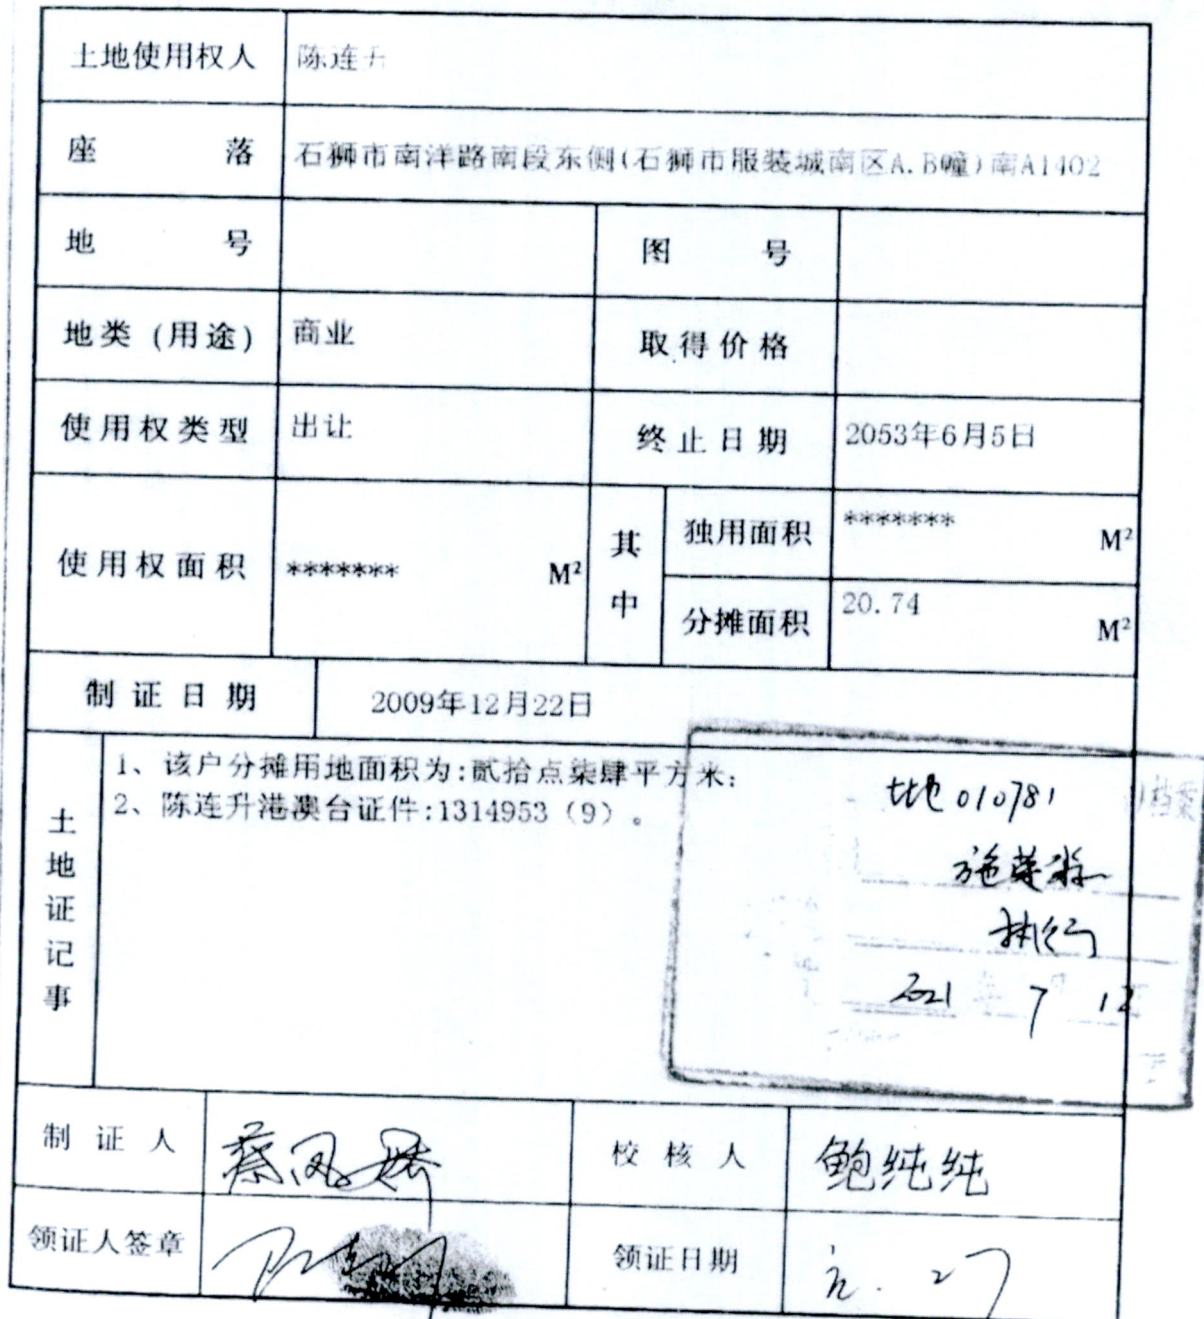 土地使用权人 陈连升
座落 石狮市南洋路南段东侧(石狮市服装城南区A.B幢)南A1402
地号 图号
地类(用途) 商业 取得价格
使用权类型 出让 终止日期 2053年6月5日
使用权面积 ******* M² 其中 独用面积 ******* M²
分摊面积 20.74 M²
制证日期 2009年12月22日
土地证记事
1、该户分摊用地面积为:贰拾点柒肆平方米;
2、陈连升港澳台证件:1314953（9）。
010781 档案
执行
2021 年 7 12
制证人 蔡凤 校核人 鲍纯纯
领证人签章 领证日期 27